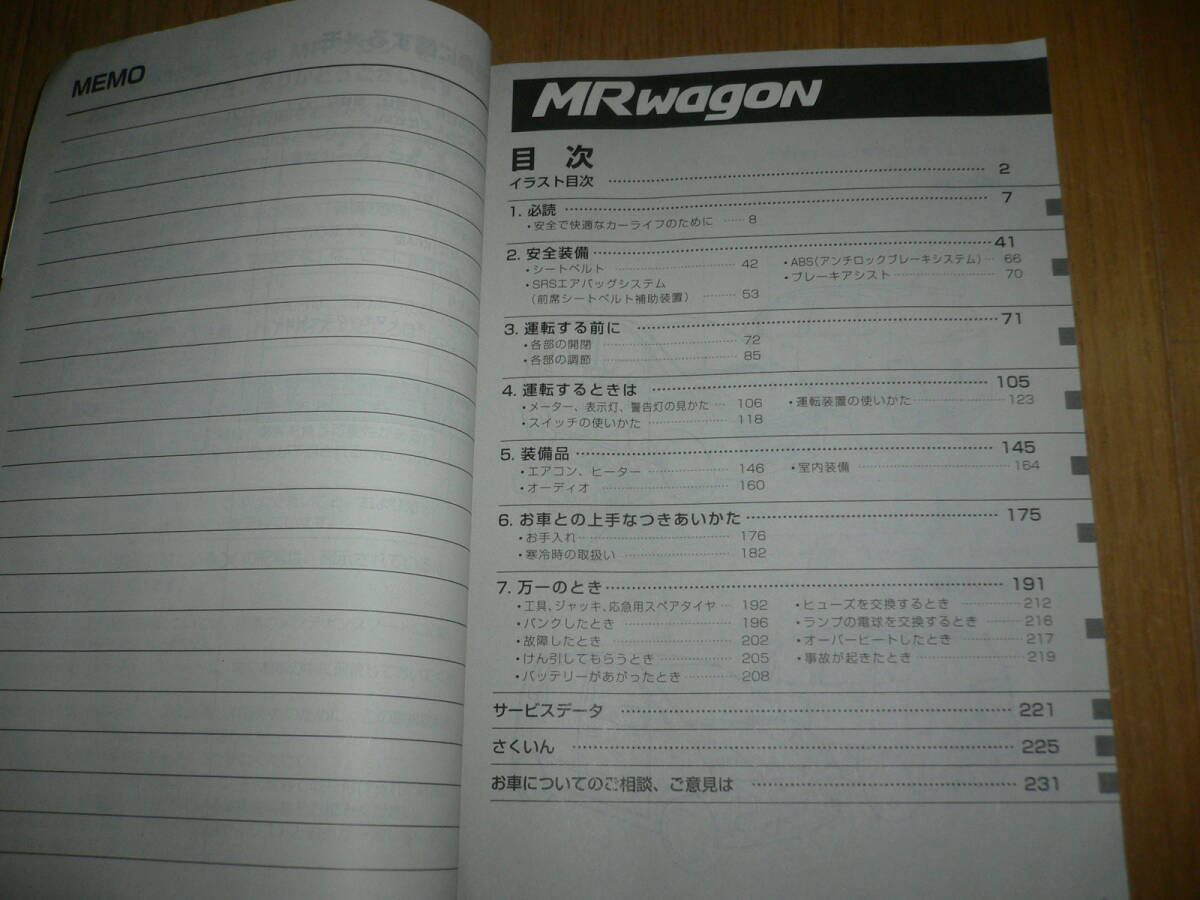 MEMO
MRwagon
目 次
イラスト目次 2
1. 必読 7
・安全で快適なカーライフのために 8
2. 安全装備 41
・シートベルト 42
・SRSエアバッグシステム
(前席シートベルト補助装置) 53
・ABS(アンチロックブレーキシステム) 66
・ブレーキアシスト 70
3. 運転する前に 71
・各部の開閉 72
・各部の調節 85
4. 運転するときは 105
・メーター、表示灯、警告灯の見かた 106
・スイッチの使いかた 118
・運転装置の使いかた 123
5. 装備品 145
・エアコン、ヒーター 146
・オーディオ 160
・室内装備 164
6. お車との上手なつきあいかた 175
・お手入れ 176
・寒冷時の取扱い 182
7. 万一のとき 191
・工具、ジャッキ、応急用スペアタイヤ 192
・パンクしたとき 196
・故障したとき 202
・けん引してもらうとき 205
・バッテリーがあがったとき 208
・ヒューズを交換するとき 212
・ランプの電球を交換するとき 216
・オーバーヒートしたとき 217
・事故が起きたとき 219
サービスデータ 221
さくいん 225
お車についてのご相談、ご意見は 231